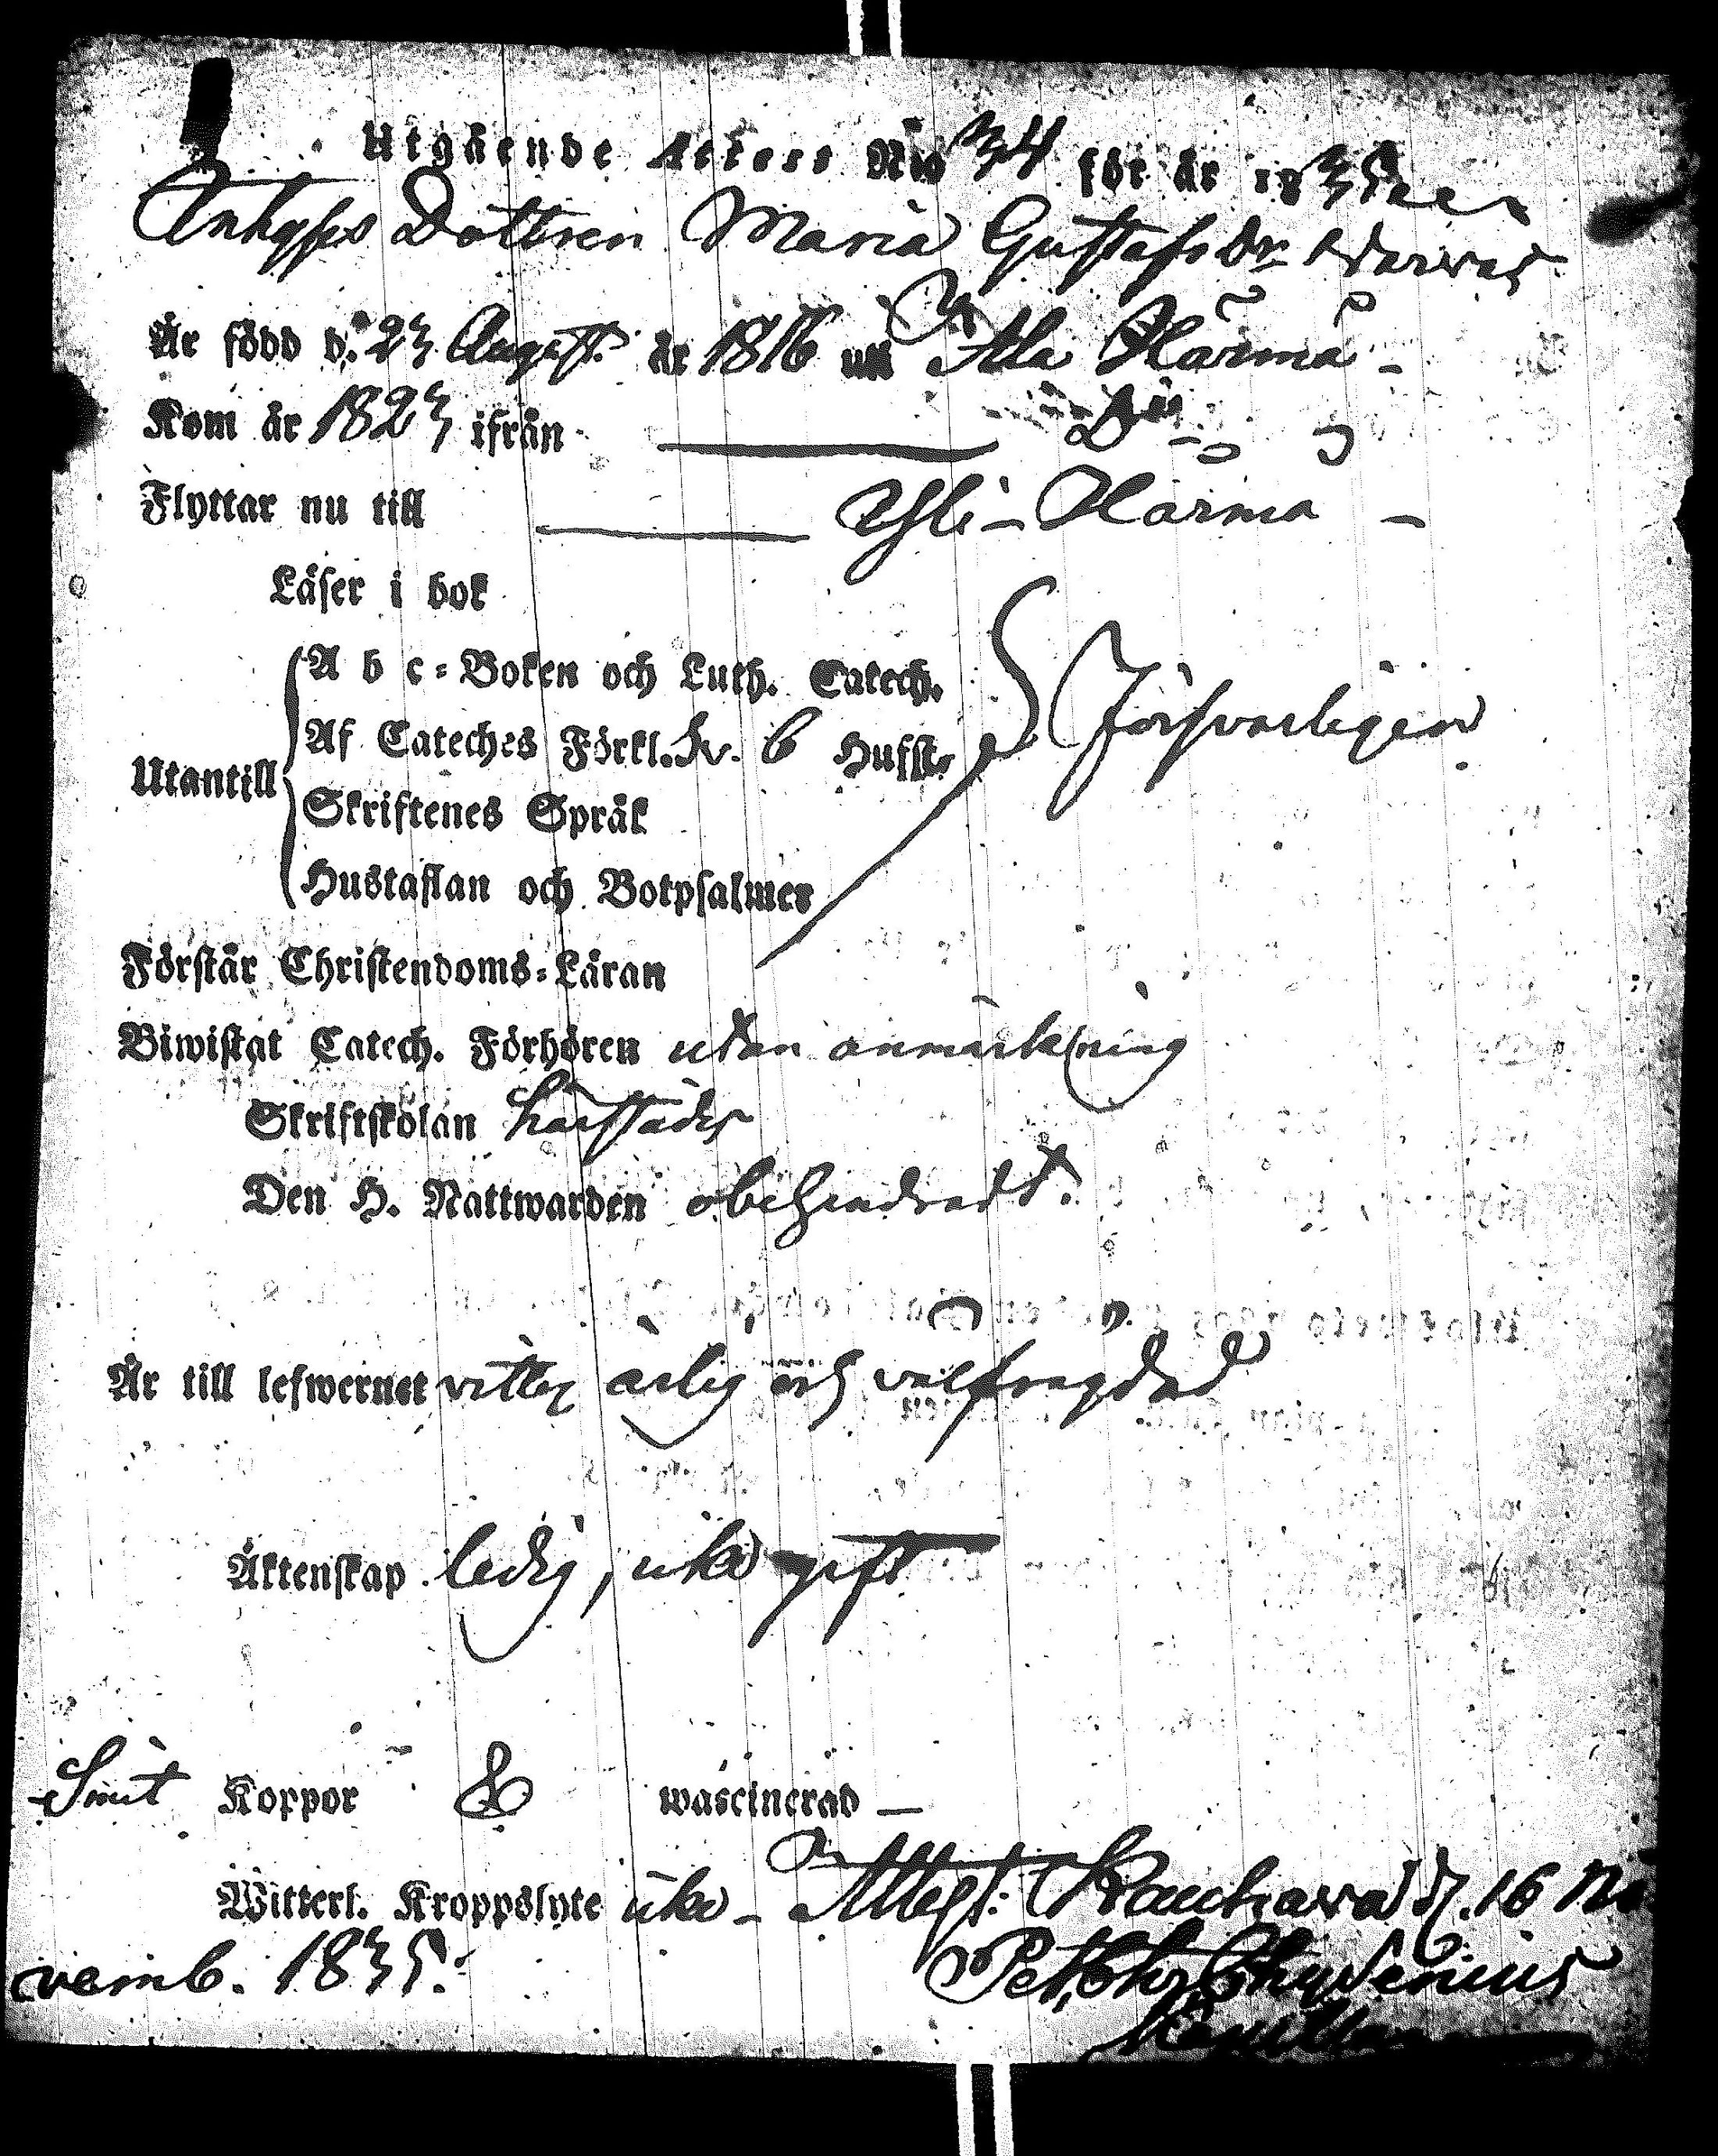 Utgående Attest N:o 34 för år 1835
Inhyses Dottren Maria Gustafs dr
Är född d. 23 August. år 1816 uti Ala Härmä -
Kom år 1823 ifrån D:o
Flyttar nu till Ylli - Härmä -
Läser i bok
A b c = Boken och Luth. Catech.
Af Cateches Förkl. Sv. 6 Hufst. Försvarligen
Utantill
Skriftenes Språk
Hustaflan och Botpsalmer
Förstår Christendoms = Läran
Biwistat Catech. Förhören utan anmärkning
Skriftskolan härstädes
Den H. Nattwarden obehindradt.
Är till lefwernet ärlig och välfrägdad
Äktenskap ledig, icke gift
Koppor & waccinerad —
Witterl. Kroppslyte icke - Attest: Kauhava d. 16 No
vemb. 1835.
Pet. Chydenius